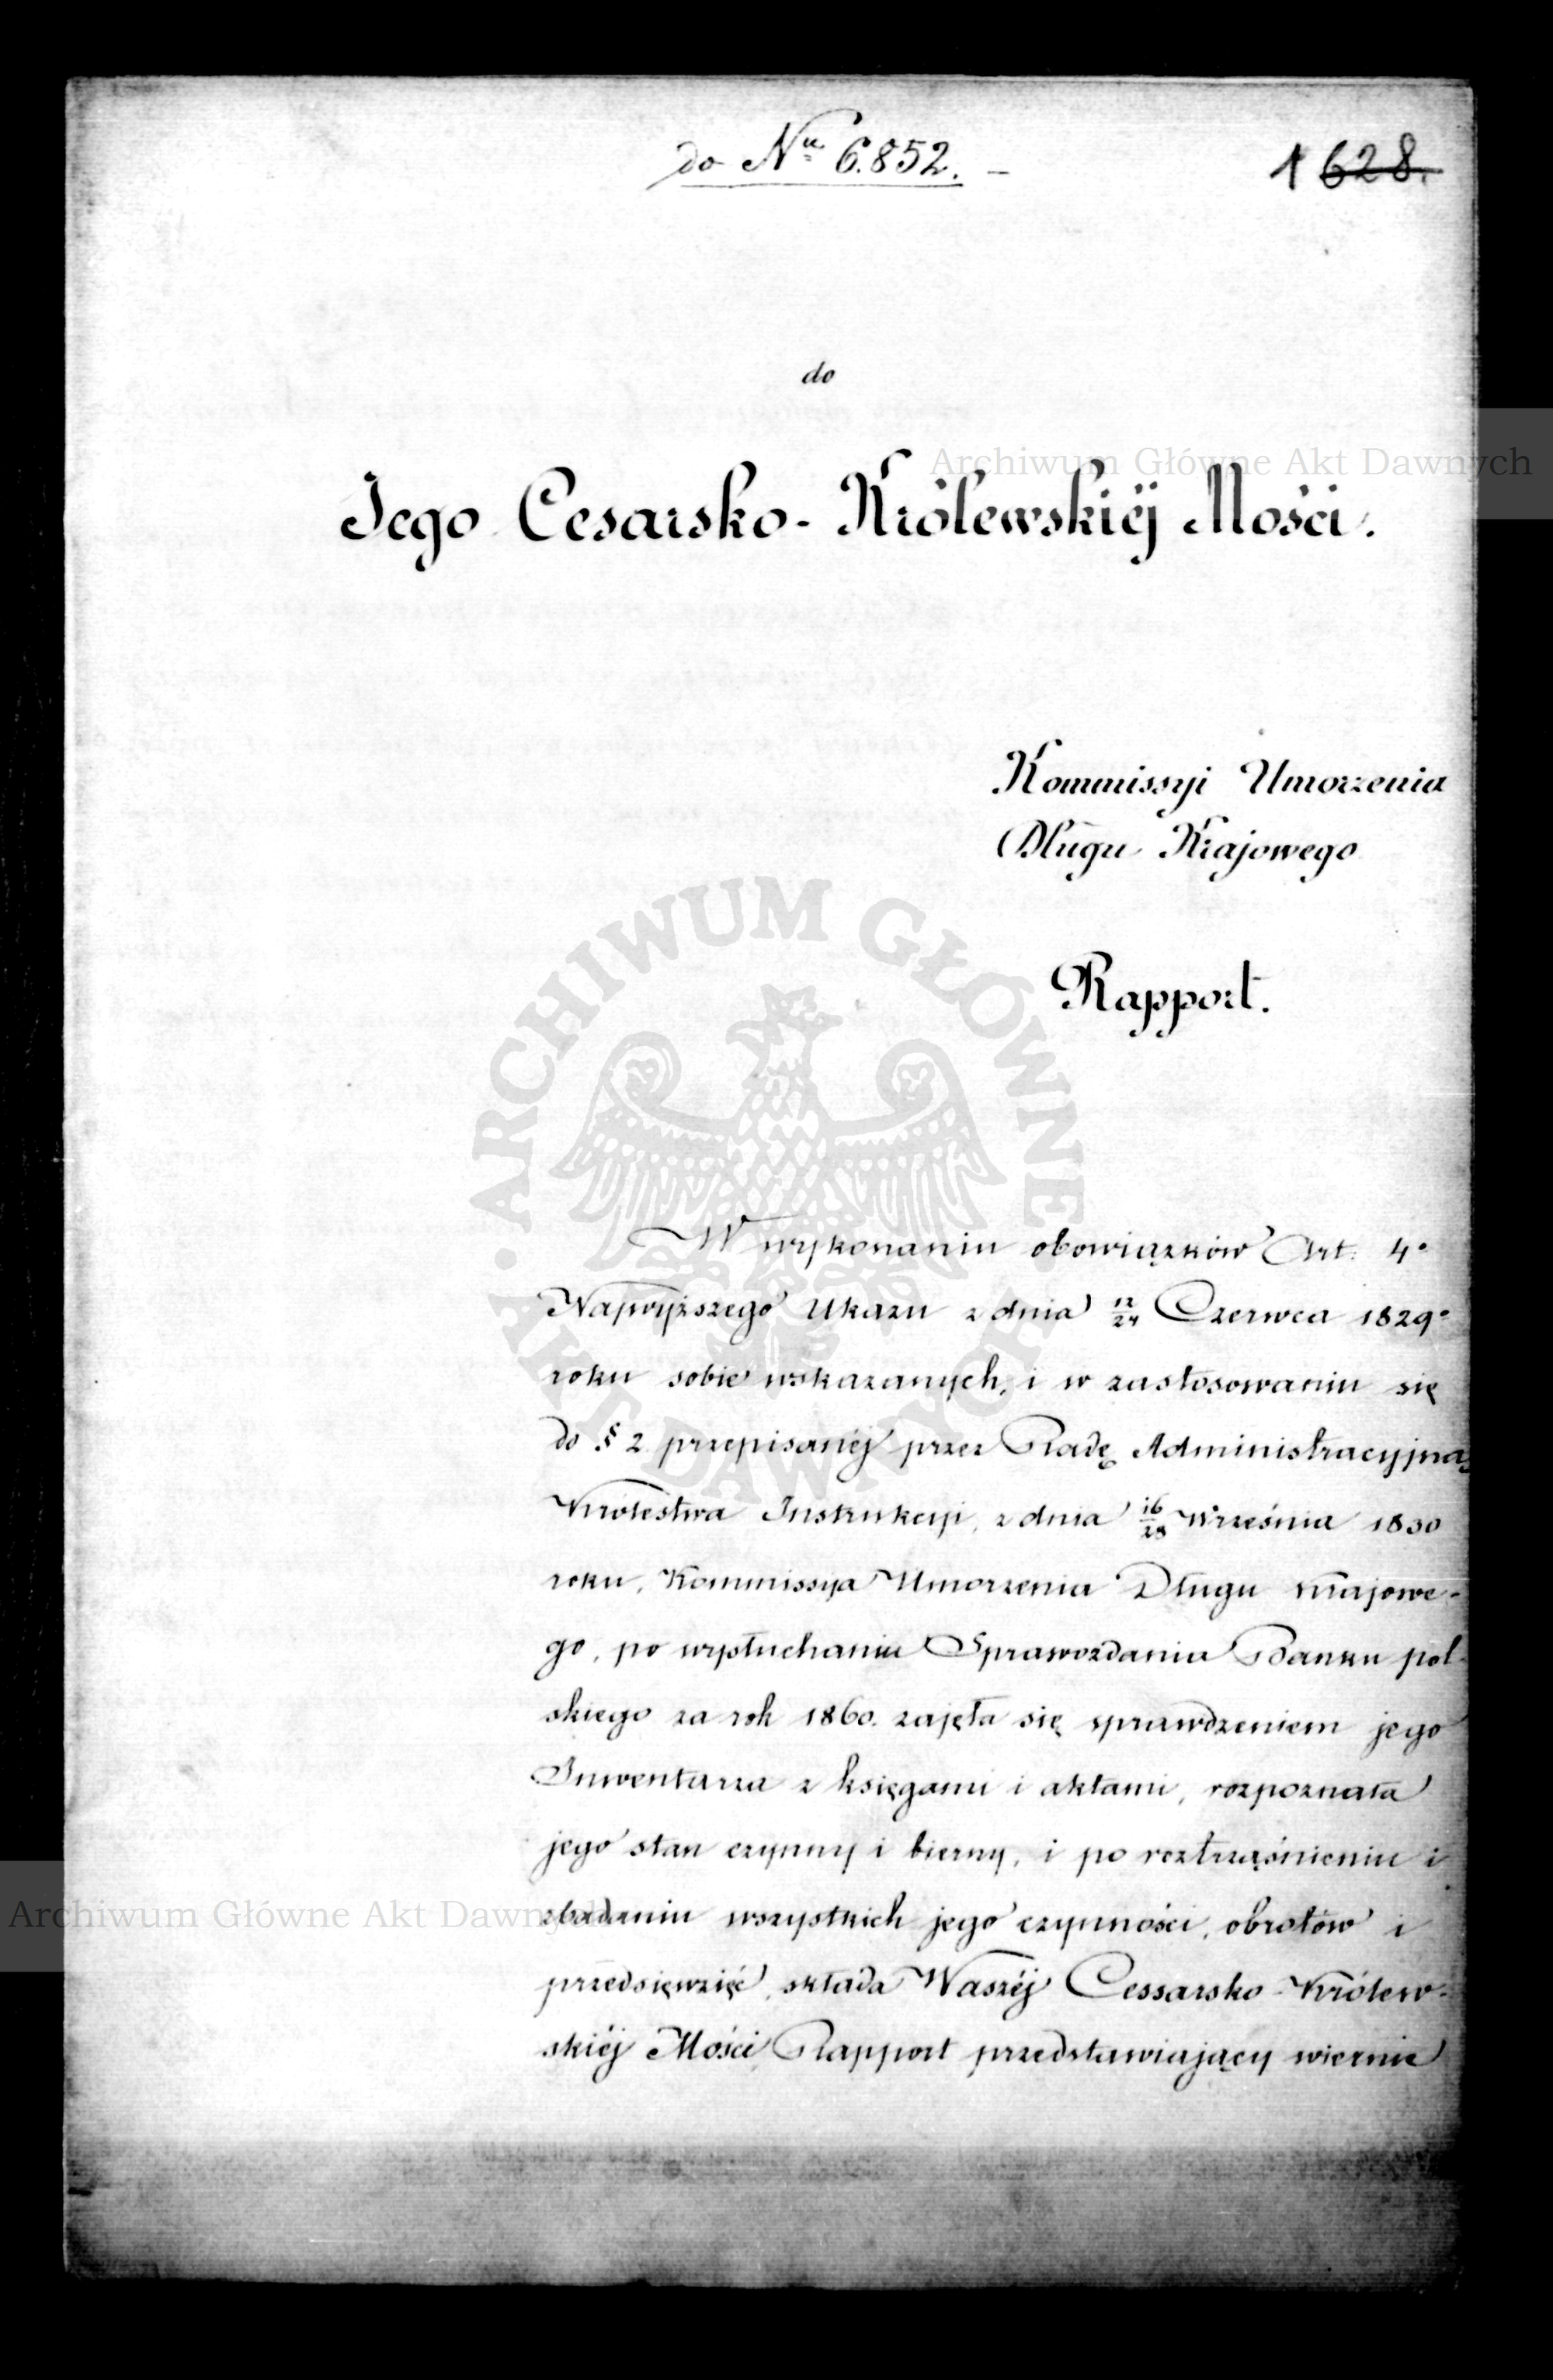 do Nru 6.852. -
1 628.
do
Jego Cesarsko-Królewskiéj Mości.
Kommissyi Umorzenia
Długu Krajowego
Rapport.
W wykonaniu obowiązków Art. 4º
Najwyższego Ukazu z dnia 12/24 Czerwca 1829º
roku sobie wskazanych, i w zastosowaniu się
do § 2 przepisanéj przez Radę Administracyjną
Królestwa Instrukcyi, z dnia 16/28 Września 1830
roku, Kommissya Umorzenia Długu Krajowe-
go, po wysłuchaniu Sprawozdania Banku pol-
skiego za rok 1860. zajęła się sprawdzeniem jego
Inwentarza z księgami i aktami, rozpoznała
jego stan czynny i bierny, i po roztrząśnieniu i
zbadaniu wszystkich jego czynności, obrotów i
przedsięwzięć, składa Waszéj Cessarsko-Królew-
skiéj Mości Rapport przedstawiający wiernie
Archiwum Główne Akt Dawnych
ARCHIWUM GŁÓWNE AKT DAWNYCH
Archiwum Główne Akt Dawnych